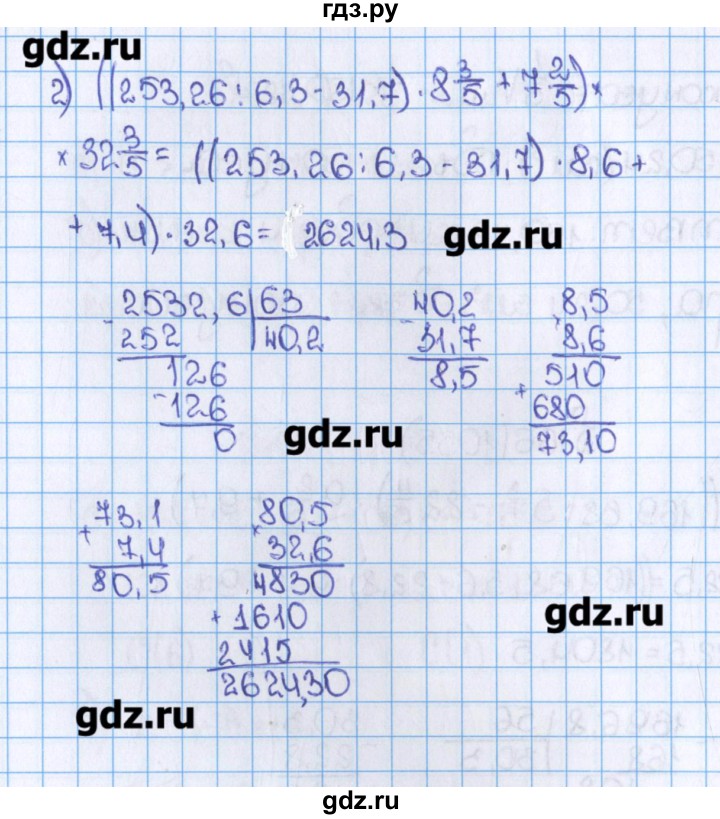 гдз.ру
gdz.ru
2) ((253,26 : 6,3 - 31,7) · 8 3/5 + 7 2/5) ×
× 32 3/5 = ((253,26 : 6,3 - 31,7) · 8,6 +
+ 7,4) · 32,6 = 2624,3
gdz.ru
- 2532,6 | 63
252 | 40,2
126
- 126
0
- 40,2
31,7
8,5
× 8,5
8,6
+ 510
680
73,10
gdz.ru
+ 73,1
7,4
80,5
× 80,5
32,6
4830
+ 1610
2415
2624,30
gdz.ru
gdz.ru
gdz.ru